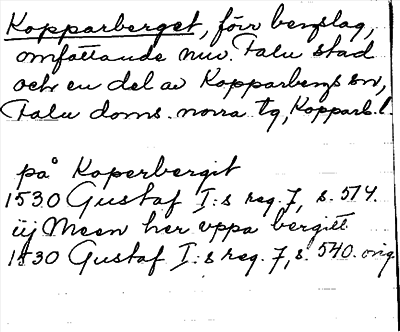 Kopparberget, förr bergslag,
omfattande nuv. Falu stad
och en del av Kopparbergs sn,
Falu doms. norra tg, Kopparb. l.
på Koperbergit
1530 Gustaf I:s reg. 7, s. 574.
iij Meen her vppa bergitt
1530 Gustaf I:s reg. 7, s. 540. orig.